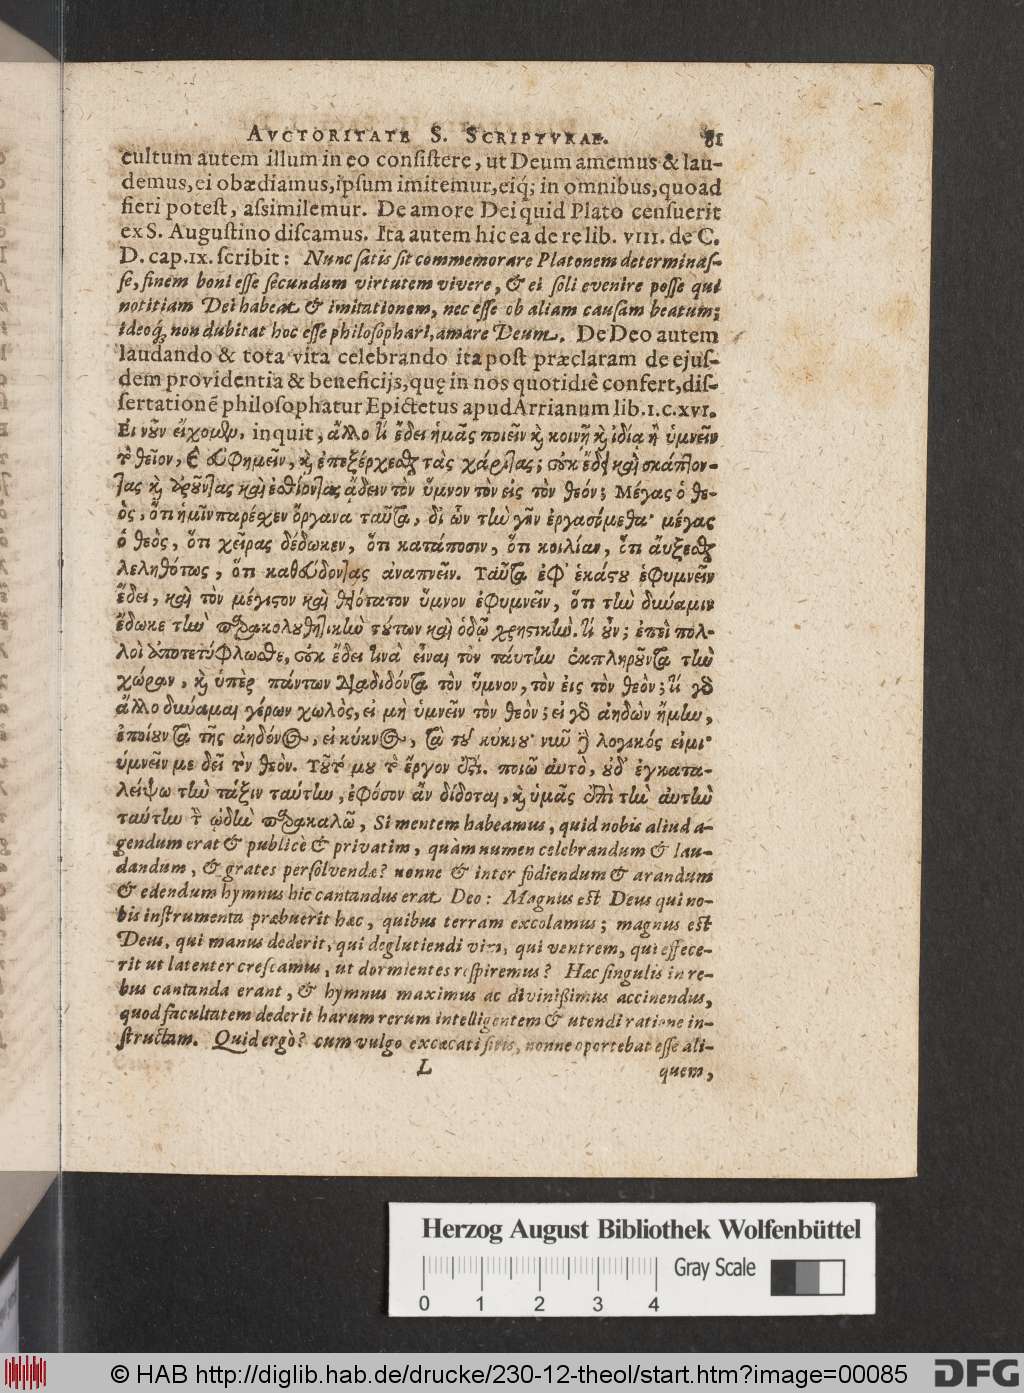 AVCTORITATE S. SCRIPTVRAE. 81
cultum autem illum in eo consistere, ut Deum amemus & lau-
demus, ei obædiamus, ipsum imitemur, eiq́; in omnibus, quoad
fieri potest, assimilemur. De amore Dei quid Plato censuerit
ex S. Augustino discamus. Ita autem hic ea de re lib. VIII. de C.
D. cap. IX. scribit: Nunc satis sit commemorare Platonem determinas-
se, finem boni esse secundum virtutem vivere, & ei soli evenire posse qui
notitiam Dei habeat & imitationem, nec esse ob aliam causam beatum;
ideoq́, non dubitat hoc esse philosophari, amare Deum. De Deo autem
laudando & tota vita celebrando ita post præclaram de ejus-
dem providentia & beneficijs, quę in nos quotidiè confert, dis-
sertationē philosophatur Epictetus apud Arrianum lib. I. c. XVI.
Εἰ νοῦν εἴχομεν, inquit, ἄλλο τί ἔδει ἡμᾶς ποιεῖν καὶ κοινῇ καὶ ἰδία ἢ ὑμνεῖν
τὸ θεῖον, καὶ εὐφημεῖν, καὶ ἐπεξέρχεσθαι τὰς χάριτας; οὐκ ἔδει καὶ σκάπτον-
τας καὶ ἀροῦντας καὶ ἐσθίοντας ᾄδειν τὸν ὕμνον τὸν εἰς τὸν θεόν; Μέγας ὁ θε-
ὸς, ὅτι ἡμῖν παρέσχεν ὄργανα ταῦτα, δι' ὧν τὴν γῆν ἐργασόμεθα· μέγας
ὁ θεὸς, ὅτι χεῖρας δέδωκεν, ὅτι κατάποσιν, ὅτι κοιλίαν, ὅτι αὔξεσθαι
λεληθότως, ὅτι καθεύδοντας ἀναπνεῖν. Ταῦτα ἐφ' ἑκάστου ἐφυμνεῖν
ἔδει, καὶ τὸν μέγιστον καὶ θειότατον ὕμνον ἐφυμνεῖν, ὅτι τὴν δύναμιν
ἔδωκε τὴν παρακολουθητικὴν τούτων καὶ ὁδῷ χρηστικήν. τί οὖν; ἐπεὶ πολ-
λοὶ ἀποτετύφλωσθε, οὐκ ἔδει τινὰ εἶναι τὸν ταύτην ἐκπληροῦντα τὴν
χώραν, καὶ ὑπὲρ πάντων διαδιδόντα τὸν ὕμνον, τὸν εἰς τὸν θεόν; τί γὰρ
ἄλλο δύναμαι γέρων χωλὸς, εἰ μὴ ὑμνεῖν τὸν θεόν; εἰ γὰρ ἀηδὼν ἤμην,
ἐποίουν τὰ τῆς ἀηδόνος, εἰ κύκνος, τὰ τοῦ κύκνου· νῦν δὲ λογικός εἰμι·
ὑμνεῖν με δεῖ τὸν θεὸν. Τοῦτό μου τὸ ἔργον ἐστί. ποιῶ αὐτὸ, οὐδ' ἐγκατα-
λείψω τὴν τάξιν ταύτην, ἐφόσον ἂν δίδοται, καὶ ὑμᾶς ἐπὶ τὴν αὐτὴν
ταύτην τὴν ᾠδὴν παρακαλῶ, Si mentem habeamus, quid nobis aliud a-
gendum erat & publicè & privatim, quàm numen celebrandum & lau-
dandum, & grates persolvendæ? nonne & inter fodiendum & arandum
& edendum hymnus hic cantandus erat Deo: Magnus est Deus qui no-
bis instrumenta præbuerit hæc, quibus terram excolamus; magnus est
Deus, qui manus dederit, qui deglutiendi vim, qui ventrem, qui effece-
rit ut latenter crescamus, ut dormientes respiremus? Hæc singulis in re-
bus cantanda erant, & hymnus maximus ac divinissimus accinendus,
quod facultatem dederit harum rerum intelligentem & utendi ratione in-
structam. Quid ergò? cum vulgo excæcati sitis, nonne oportebat esse ali-
L quem,
Herzog August Bibliothek Wolfenbüttel
Gray Scale
0 1 2 3 4
© HAB http://diglib.hab.de/drucke/230-12-theol/start.htm?image=00085
DFG